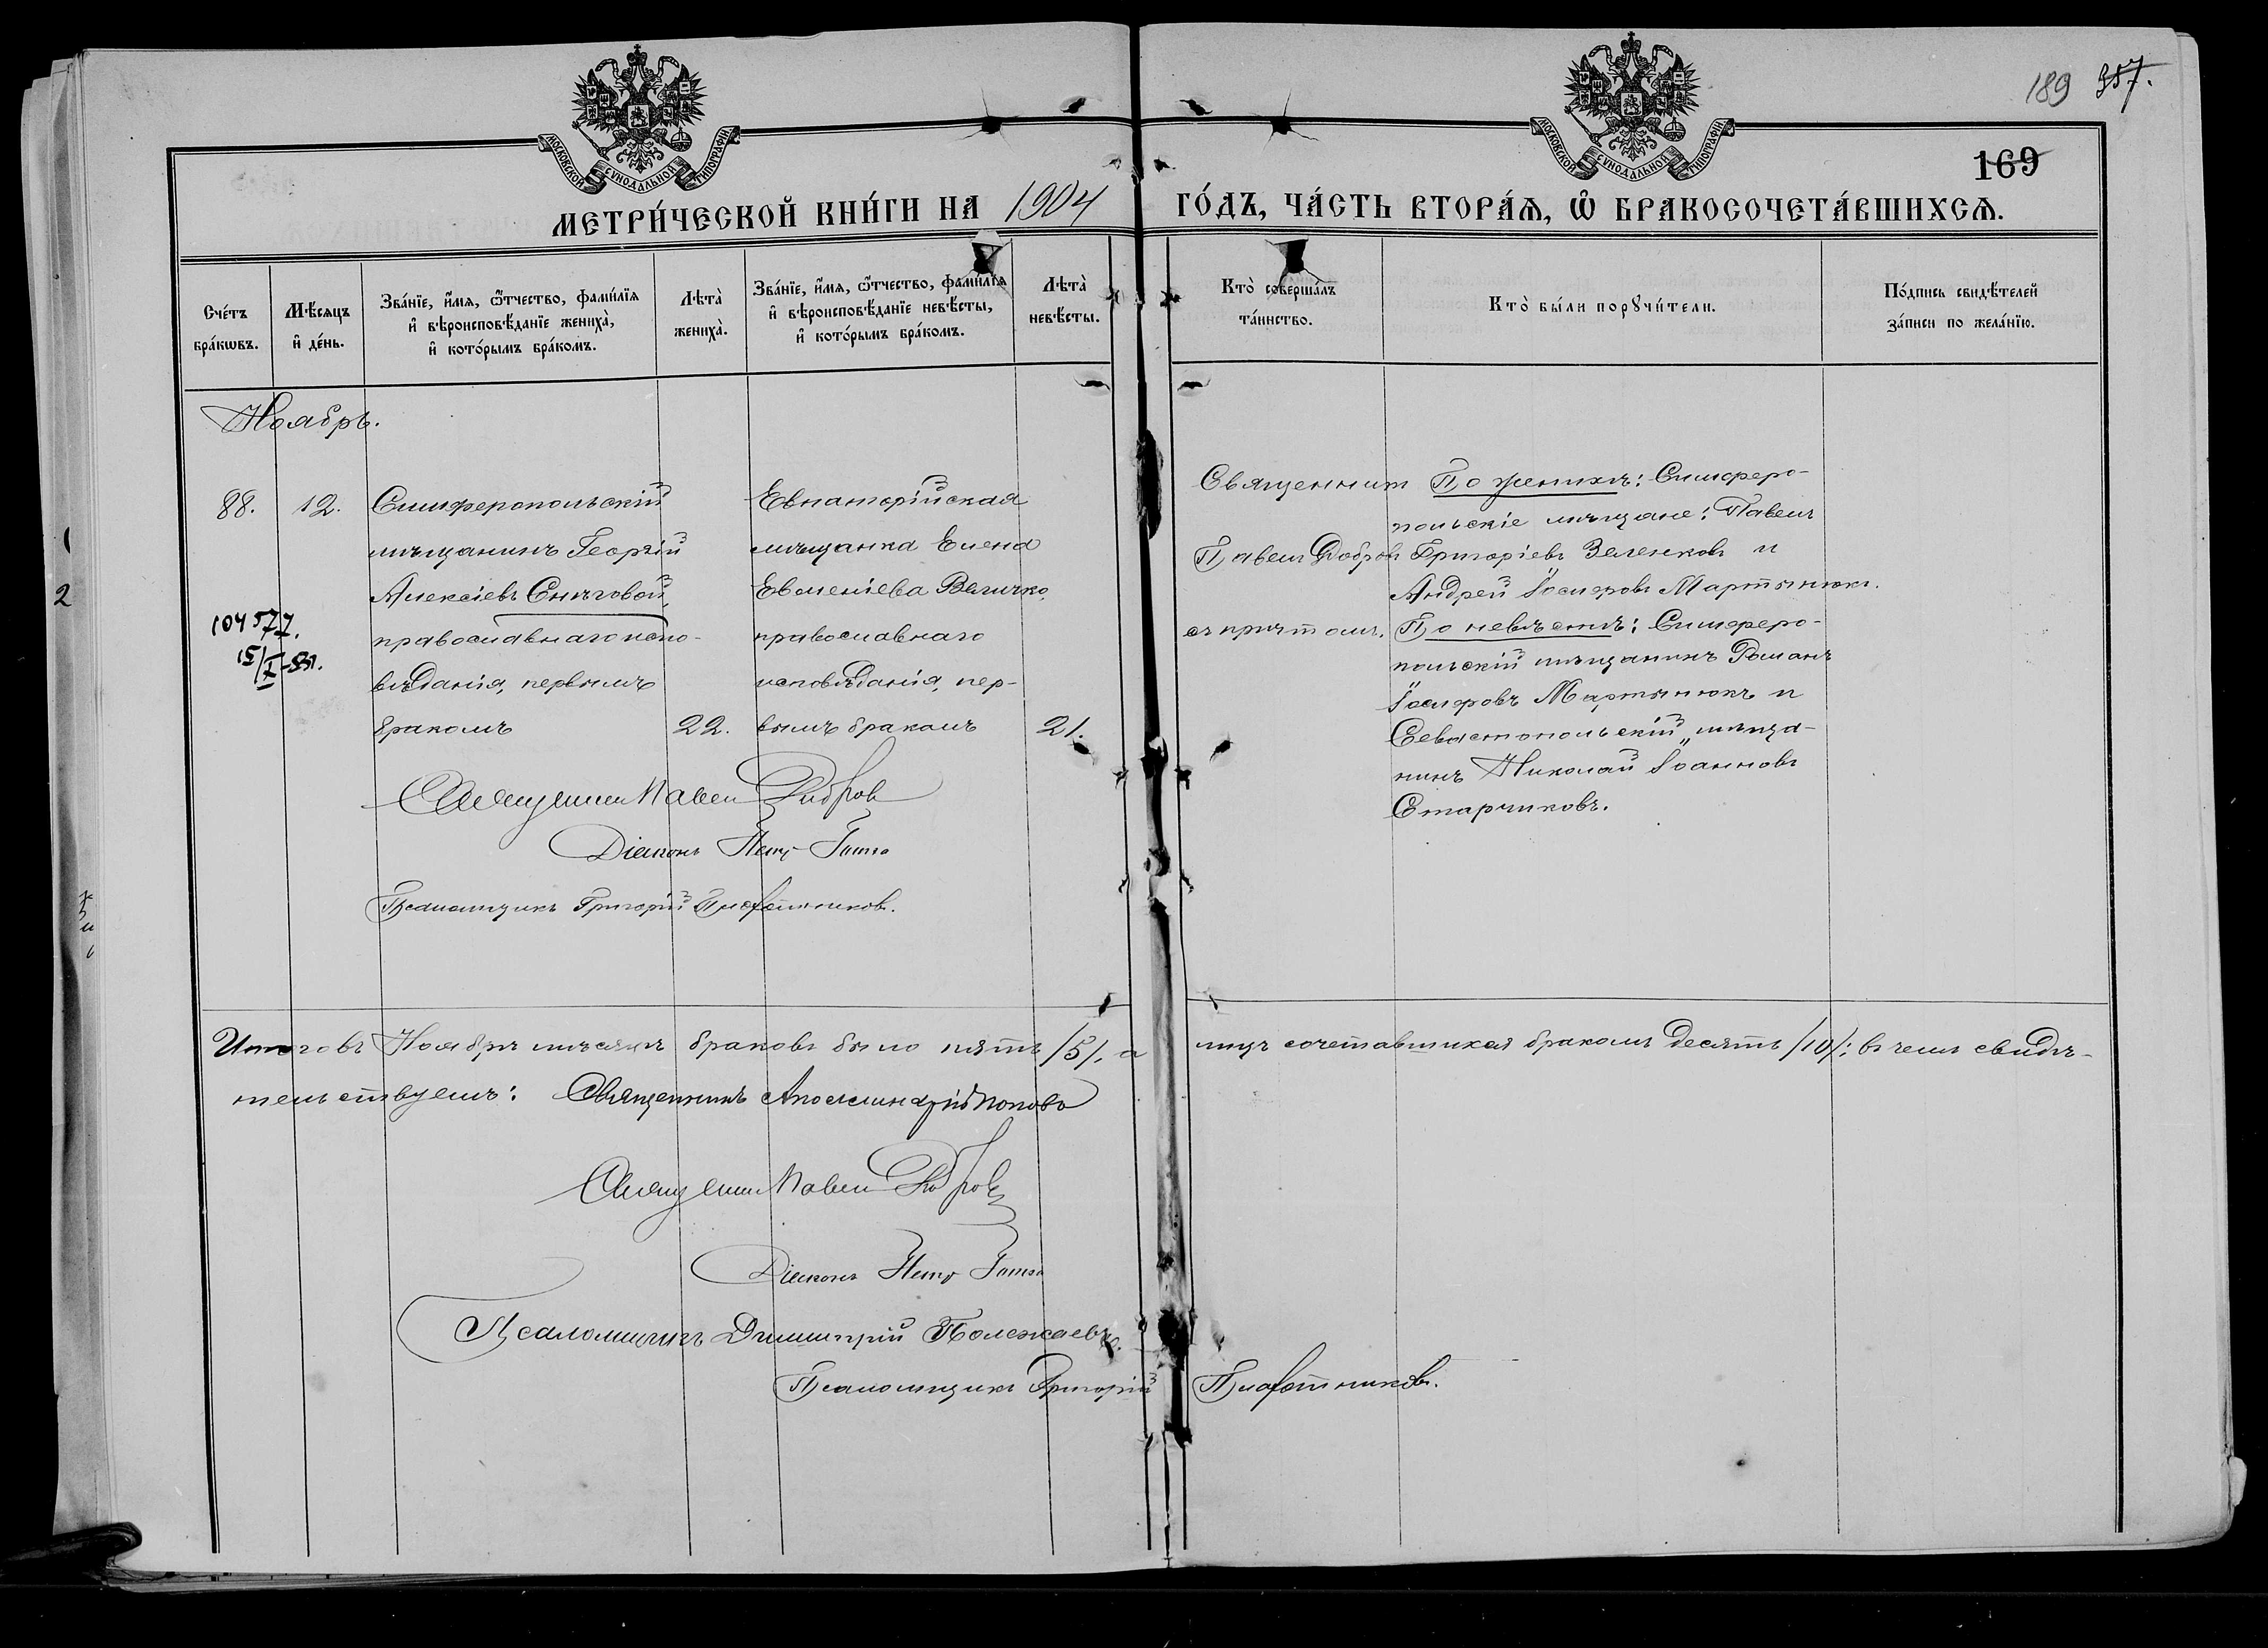 189 357.
169
МОСКОВСКОЙ СѴНОДАЛЬНОЙ ТИПОГРАФІИ
МОСКОВСКОЙ СѴНОДАЛЬНОЙ ТИПОГРАФІИ
МЕТРИ́ЧЕСКОЙ КНИ́ГИ НА 1904 ГО́ДЪ, ЧА́СТЬ ВТОРА́Ѧ, Ѡ҆ БРАКОСОЧЕТА́ВШИХСѦ.
Сче́тъ
бра́кѡвъ.
Мѣ́сяцъ
и҆ де́нь.
Зва́нїе, и҆́мѧ, ѻ҆́тчество, фами́лїѧ
и҆ вѣроисповѣ́данїе жениха̀,
и҆ кото́рымъ бра́комъ.
Лѣта̀
жениха̀.
Зва́нїе, и҆́мѧ, ѻ҆́тчество, фами́лїѧ
и҆ вѣроисповѣ́данїе невѣ́сты,
и҆ кото́рымъ бра́комъ.
Лѣта̀
невѣ́сты.
Кто̀ соверша́лъ
та́инство.
Кто̀ бы́ли порꙋчи́тели.
По́дпись свидѣ́телей
за́писи по жела́нїю.
Ноябрь.
88.
12.
Симферопольскій
мѣщанинъ Георгій
Алексіевъ Снѣговой,
православнаго испо-
вѣданія, первымъ
бракомъ
22.
Евпаторійская
мѣщанка Елена
Евменіева Величко,
православнаго
исповѣданія, пер-
вымъ бракомъ
21.
104577.
15/I-51.
Священник
Павелъ Добров
съ причтомъ.
По женихѣ: Симферо-
польскіе мѣщане: Павелъ
Григоріевъ Зеленковъ и
Андрей Іосифовъ Мартынюкъ.
По невѣстѣ: Симферо-
польскій мѣщанинъ Романъ
Іосифовъ Мартынюкъ и
Севастопольскій мѣща-
нинъ Николай Іоанновъ
Старчиковъ.
Священникъ Павелъ Добров
Діаконъ Петръ
Псаломщикъ Григорій Плахотников.
Итого въ Ноябрѣ мѣсяцѣ браковъ было пять /5/, а лицъ сочетавшихся бракомъ десять /10/; въ чемъ свидѣ-
тельствуемъ: Священникъ Аполлинарій Поповъ
Священникъ Павелъ Добров
Діаконъ Петръ
Псаломщикъ Димитрій Полежаевъ.
Псаломщикъ Григорій Плахотников.
2